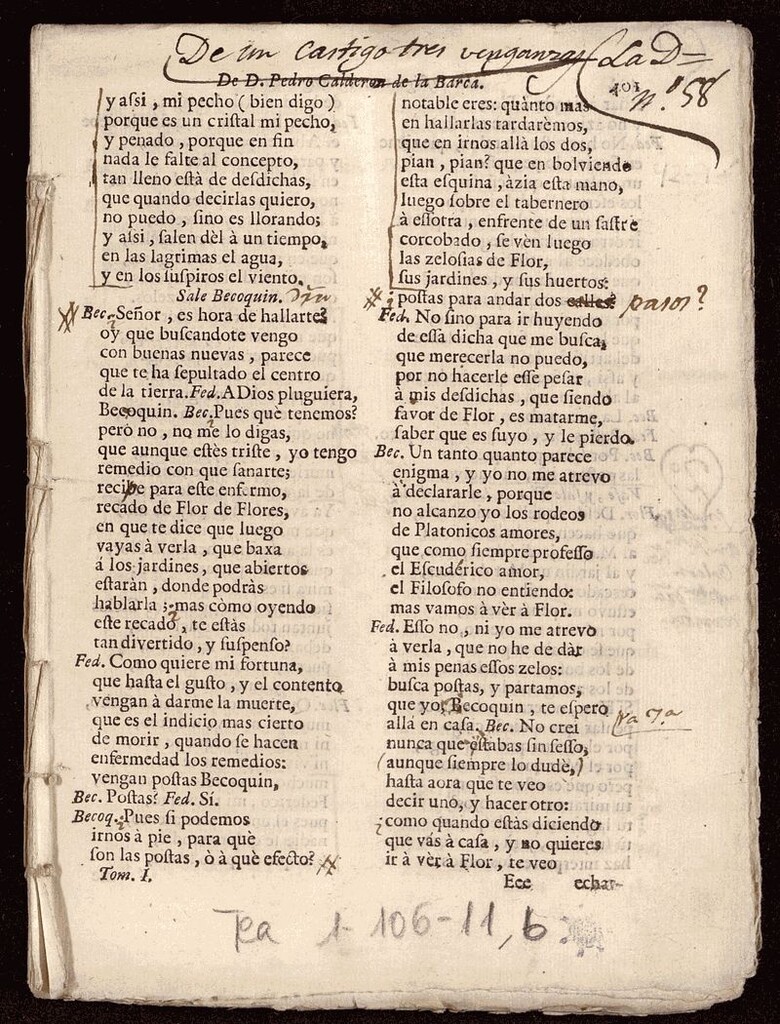 De un castigo tres venganzas La D=
De D. Pedro Calderon de la Barca.
401
nº 58
y aſsi, mi pecho (bien digo)
porque es un criſtal mi pecho,
y penado, porque en fin
nada le falte al concepto,
tan lleno eſtà de deſdichas,
que quando decirlas quiero,
no puedo, ſino es llorando;
y aſsi, ſalen dèl à un tiempo,
en las lagrimas el agua,
y en los ſuſpiros el viento.
Sale Becoquin.
Bec. Señor, es hora de hallarte?
oy que buſcandote vengo
con buenas nuevas, parece
que te ha ſepultado el centro
de la tierra. Fed. A Dios pluguiera,
Becoquin. Bec. Pues què tenemos?
però no, no me lo digas,
que aunque eſtès triſte, yo tengo
remedio con que ſanarte;
recipe para eſte enfermo,
recado de Flor de Flores,
en que te dice que luego
vayas à verla, que baxa
á los jardines, que abiertos
eſtaràn, donde podràs
hablarla; mas còmo oyendo
eſte recado, te eſtàs
tan divertido, y ſuſpenſo?
Fed. Como quiere mi fortuna,
que haſta el guſto, y el contento
vengan à darme la muerte,
que es el indicio mas cierto
de morir, quando ſe hacen
enfermedad los remedios:
vengan poſtas Becoquin,
Bec. Poſtas? Fed. Sí.
Becoq. Pues ſi podemos
irnos à pie, para què
ſon las poſtas, ò à què efecto?
Tom. I.
notable eres: quànto mas
en hallarlas tardarèmos,
que en irnos allà los dos,
pian, pian? que en bolviendo
eſta eſquina, àzia eſta mano,
luego ſobre el tabernero
à eſſotra, enfrente de un ſaſtre
corcobado, ſe vèn luego
las zeloſias de Flor,
ſus jardines, y ſus huertos:
poſtas para andar dos calles? pasos?
Fed. No ſino para ir huyendo
de eſſa dicha que me buſca,
que merecerla no puedo,
por no hacerle eſſe peſar
à mis deſdichas, que ſiendo
favor de Flor, es matarme,
ſaber que es ſuyo, y le pierdo.
Bec. Un tanto quanto parece
enigma, y yo no me atrevo
à declararle, porque
no alcanzo yo los rodeos
de Platonicos amores,
que como ſiempre profeſſo
el Eſcudérico amor,
el Filoſofo no entiendo:
mas vamos à vèr à Flor.
Fed. Eſſo no, ni yo me atrevo
à verla, que no he de dàr
à mis penas eſſos zelos:
buſca poſtas, y partamos,
que yo, Becoquin, te eſpero
allà en caſa. Bec. No crei
nunca que eſtabas ſin ſeſſo,
(aunque ſiempre lo dudè,)
haſta aora que te veo
decir uno, y hacer otro:
como quando eſtàs diciendo
que vàs à caſa, y no quieres
ir à vèr à Flor, te veo
Eee echar-
Tea 1-106-11, b